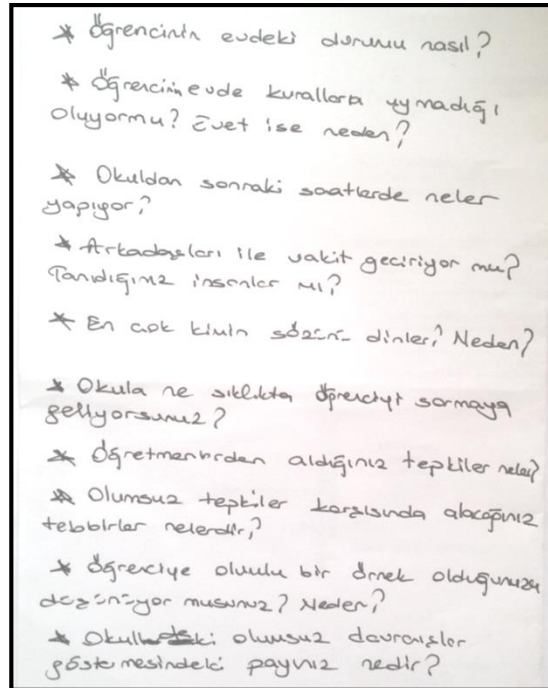 * Öğrencinin evdeki durumu nasıl?
* Öğrencinin evde kurallara uymadığı
oluyormu? Evet ise neden?
* Okuldan sonraki saatlerde neler
yapıyor?
* Arkadaşları ile vakit geçiriyor mu?
Tanıdığınız insanlar mı?
* En çok kimin sözünü dinler? Neden?
* Okula ne sıklıkta öğrenciyi sormaya
geliyorsunuz?
* Öğretmenlerden aldığınız tepkiler neler?
* Olumsuz tepkiler karşısında alacağınız
tebbirler nelerdir?
* Öğrenciye olumlu bir örnek olduğunuzu
düşünüyor musunuz? Neden?
* Okuldaki olumsuz davranışlar
göstemesindeki payınız nedir?